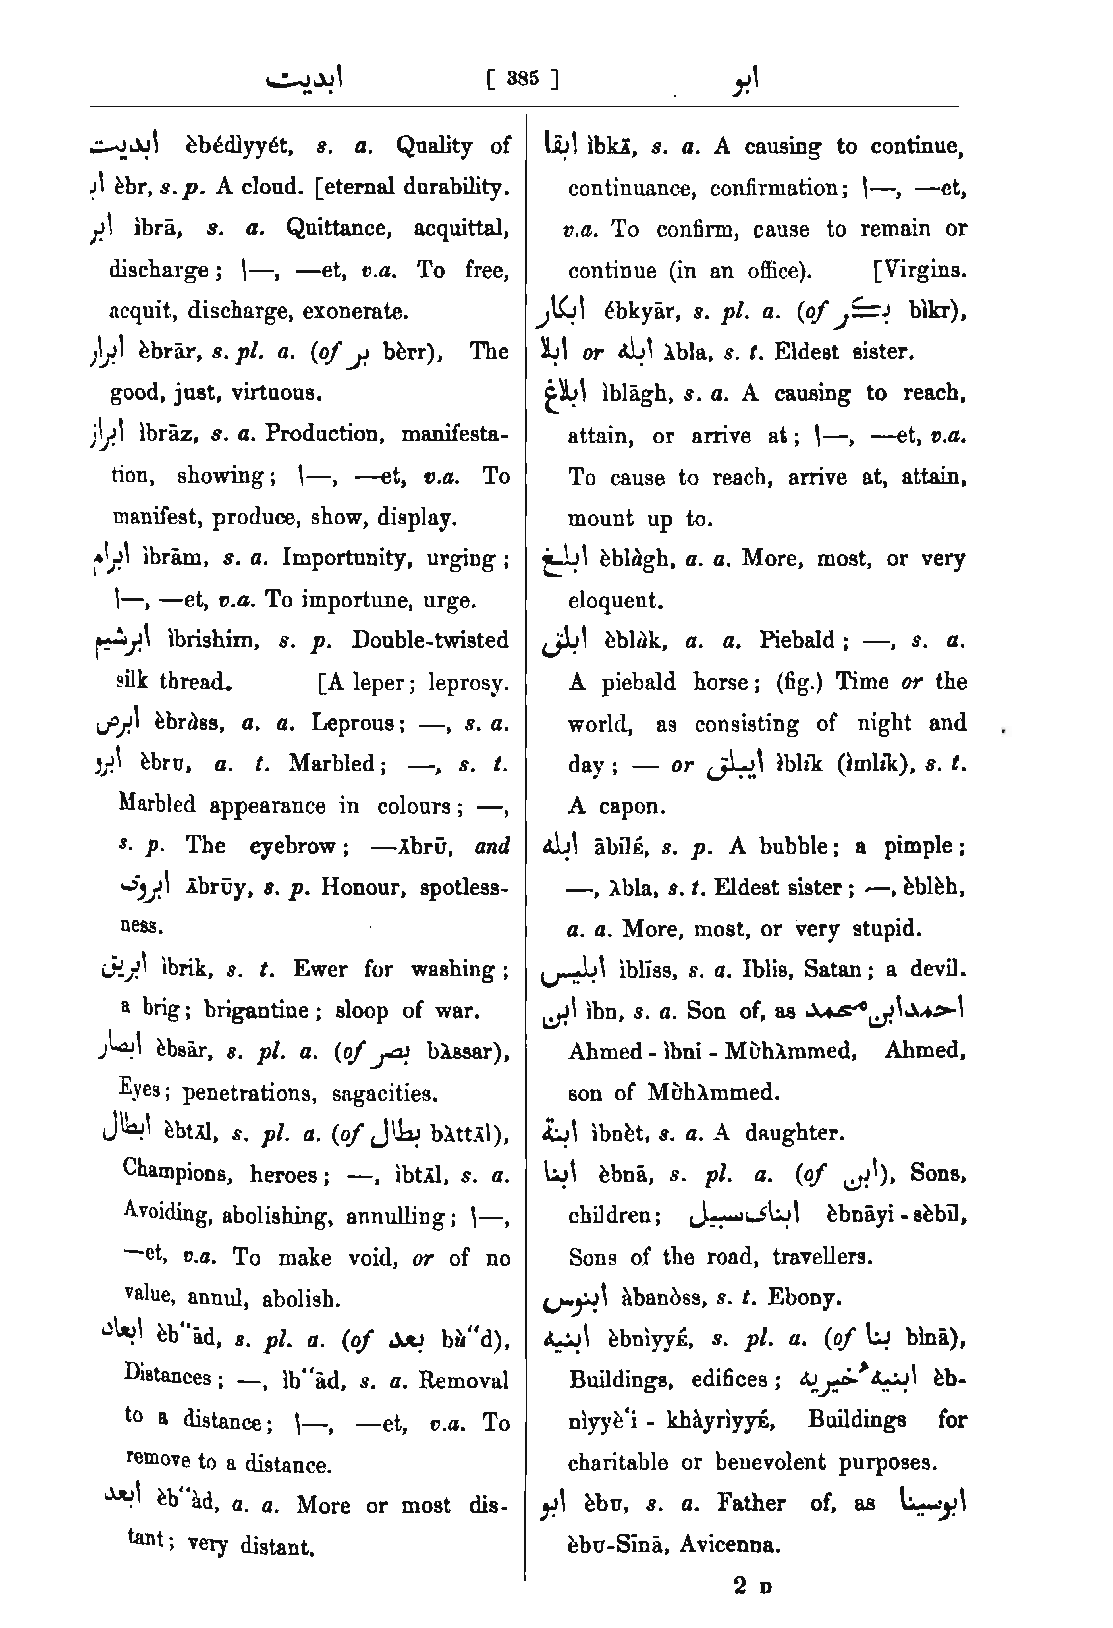 ابدیت [ 385 ] ابو
ابدیت èbédìyyét, s. a. Quality of
ابر èbr, s. p. A cloud. [eternal durability.
ابر ìbrā, s. a. Quittance, acquittal,
discharge ; ا—, —et, v.a. To free,
acquit, discharge, exonerate.
ابرار èbrār, s. pl. a. (of بر bèrr), The
good, just, virtuous.
ابراز ìbrāz, s. a. Production, manifesta-
tion, showing ; ا—, —et, v.a. To
manifest, produce, show, display.
ابرام ìbrām, s. a. Importunity, urging ;
ا—, —et, v.a. To importune, urge.
ابرشیم ìbrishim, s. p. Double-twisted
silk thread. [A leper ; leprosy.
ابرص èbràss, a. a. Leprous ; —, s. a.
ابرو èbrᴜ, a. t. Marbled ; —, s. t.
Marbled appearance in colours ; —,
s. p. The eyebrow ; —Ābrū, and
ابروی Ābrūy, s. p. Honour, spotless-
ness.
ابریق ìbrik, s. t. Ewer for washing ;
a brig ; brigantine ; sloop of war.
ابصار èbsār, s. pl. a. (of بصر bλssar),
Eyes ; penetrations, sagacities.
ابطال èbtĀl, s. pl. a. (of بطال bλttĀl),
Champions, heroes ; —, ìbtĀl, s. a.
Avoiding, abolishing, annulling ; ا—,
—et, v.a. To make void, or of no
value, annul, abolish.
ابعاد èb“ād, s. pl. a. (of بعد bù“d),
Distances ; —, ìb“ād, s. a. Removal
to a distance ; ا—, —et, v.a. To
remove to a distance.
ابعد èb“àd, a. a. More or most dis-
tant ; very distant.
ابقا ìbkĀ, s. a. A causing to continue,
continuance, confirmation ; ا—, —et,
v.a. To confirm, cause to remain or
continue (in an office). [Virgins.
ابكار ébkyār, s. pl. a. (of بكر bìkr),
ابلا or ابله λbla, s. t. Eldest sister.
ابلاغ ìblāgh, s. a. A causing to reach,
attain, or arrive at ; ا—, —et, v.a.
To cause to reach, arrive at, attain,
mount up to.
ابلغ èblàgh, a. a. More, most, or very
eloquent.
ابلق èblàk, a. a. Piebald ; —, s. a.
A piebald horse ; (fig.) Time or the
world, as consisting of night and
day ; — or ایبلق ìblīk (ìmlīk), s. t.
A capon.
ابله ābīlÉ, s. p. A bubble ; a pimple ;
—, λbla, s. t. Eldest sister ; —, èblèh,
a. a. More, most, or very stupid.
ابلیس ìblīss, s. a. Iblis, Satan ; a devil.
ابن ìbn, s. a. Son of, as احمدابن محمد
Ahmed - ìbni - Mùhλmmed, Ahmed,
son of Mùhλmmed.
ابنة ìbnèt, s. a. A daughter.
ابنا èbnā, s. pl. a. (of ابن), Sons,
children ; ابنای سبیل èbnāyi - sèbīl,
Sons of the road, travellers.
ابنوس àbanòss, s. t. Ebony.
ابنیه èbnìyyÉ, s. pl. a. (of بنا bìnā),
Buildings, edifices ; ابنیهٔ خیریه èb-
nìyyè‘i - khàyrìyyÉ, Buildings for
charitable or benevolent purposes.
ابو èbᴜ, s. a. Father of, as ابوسینا
èbᴜ-Sīnā, Avicenna.
2 D